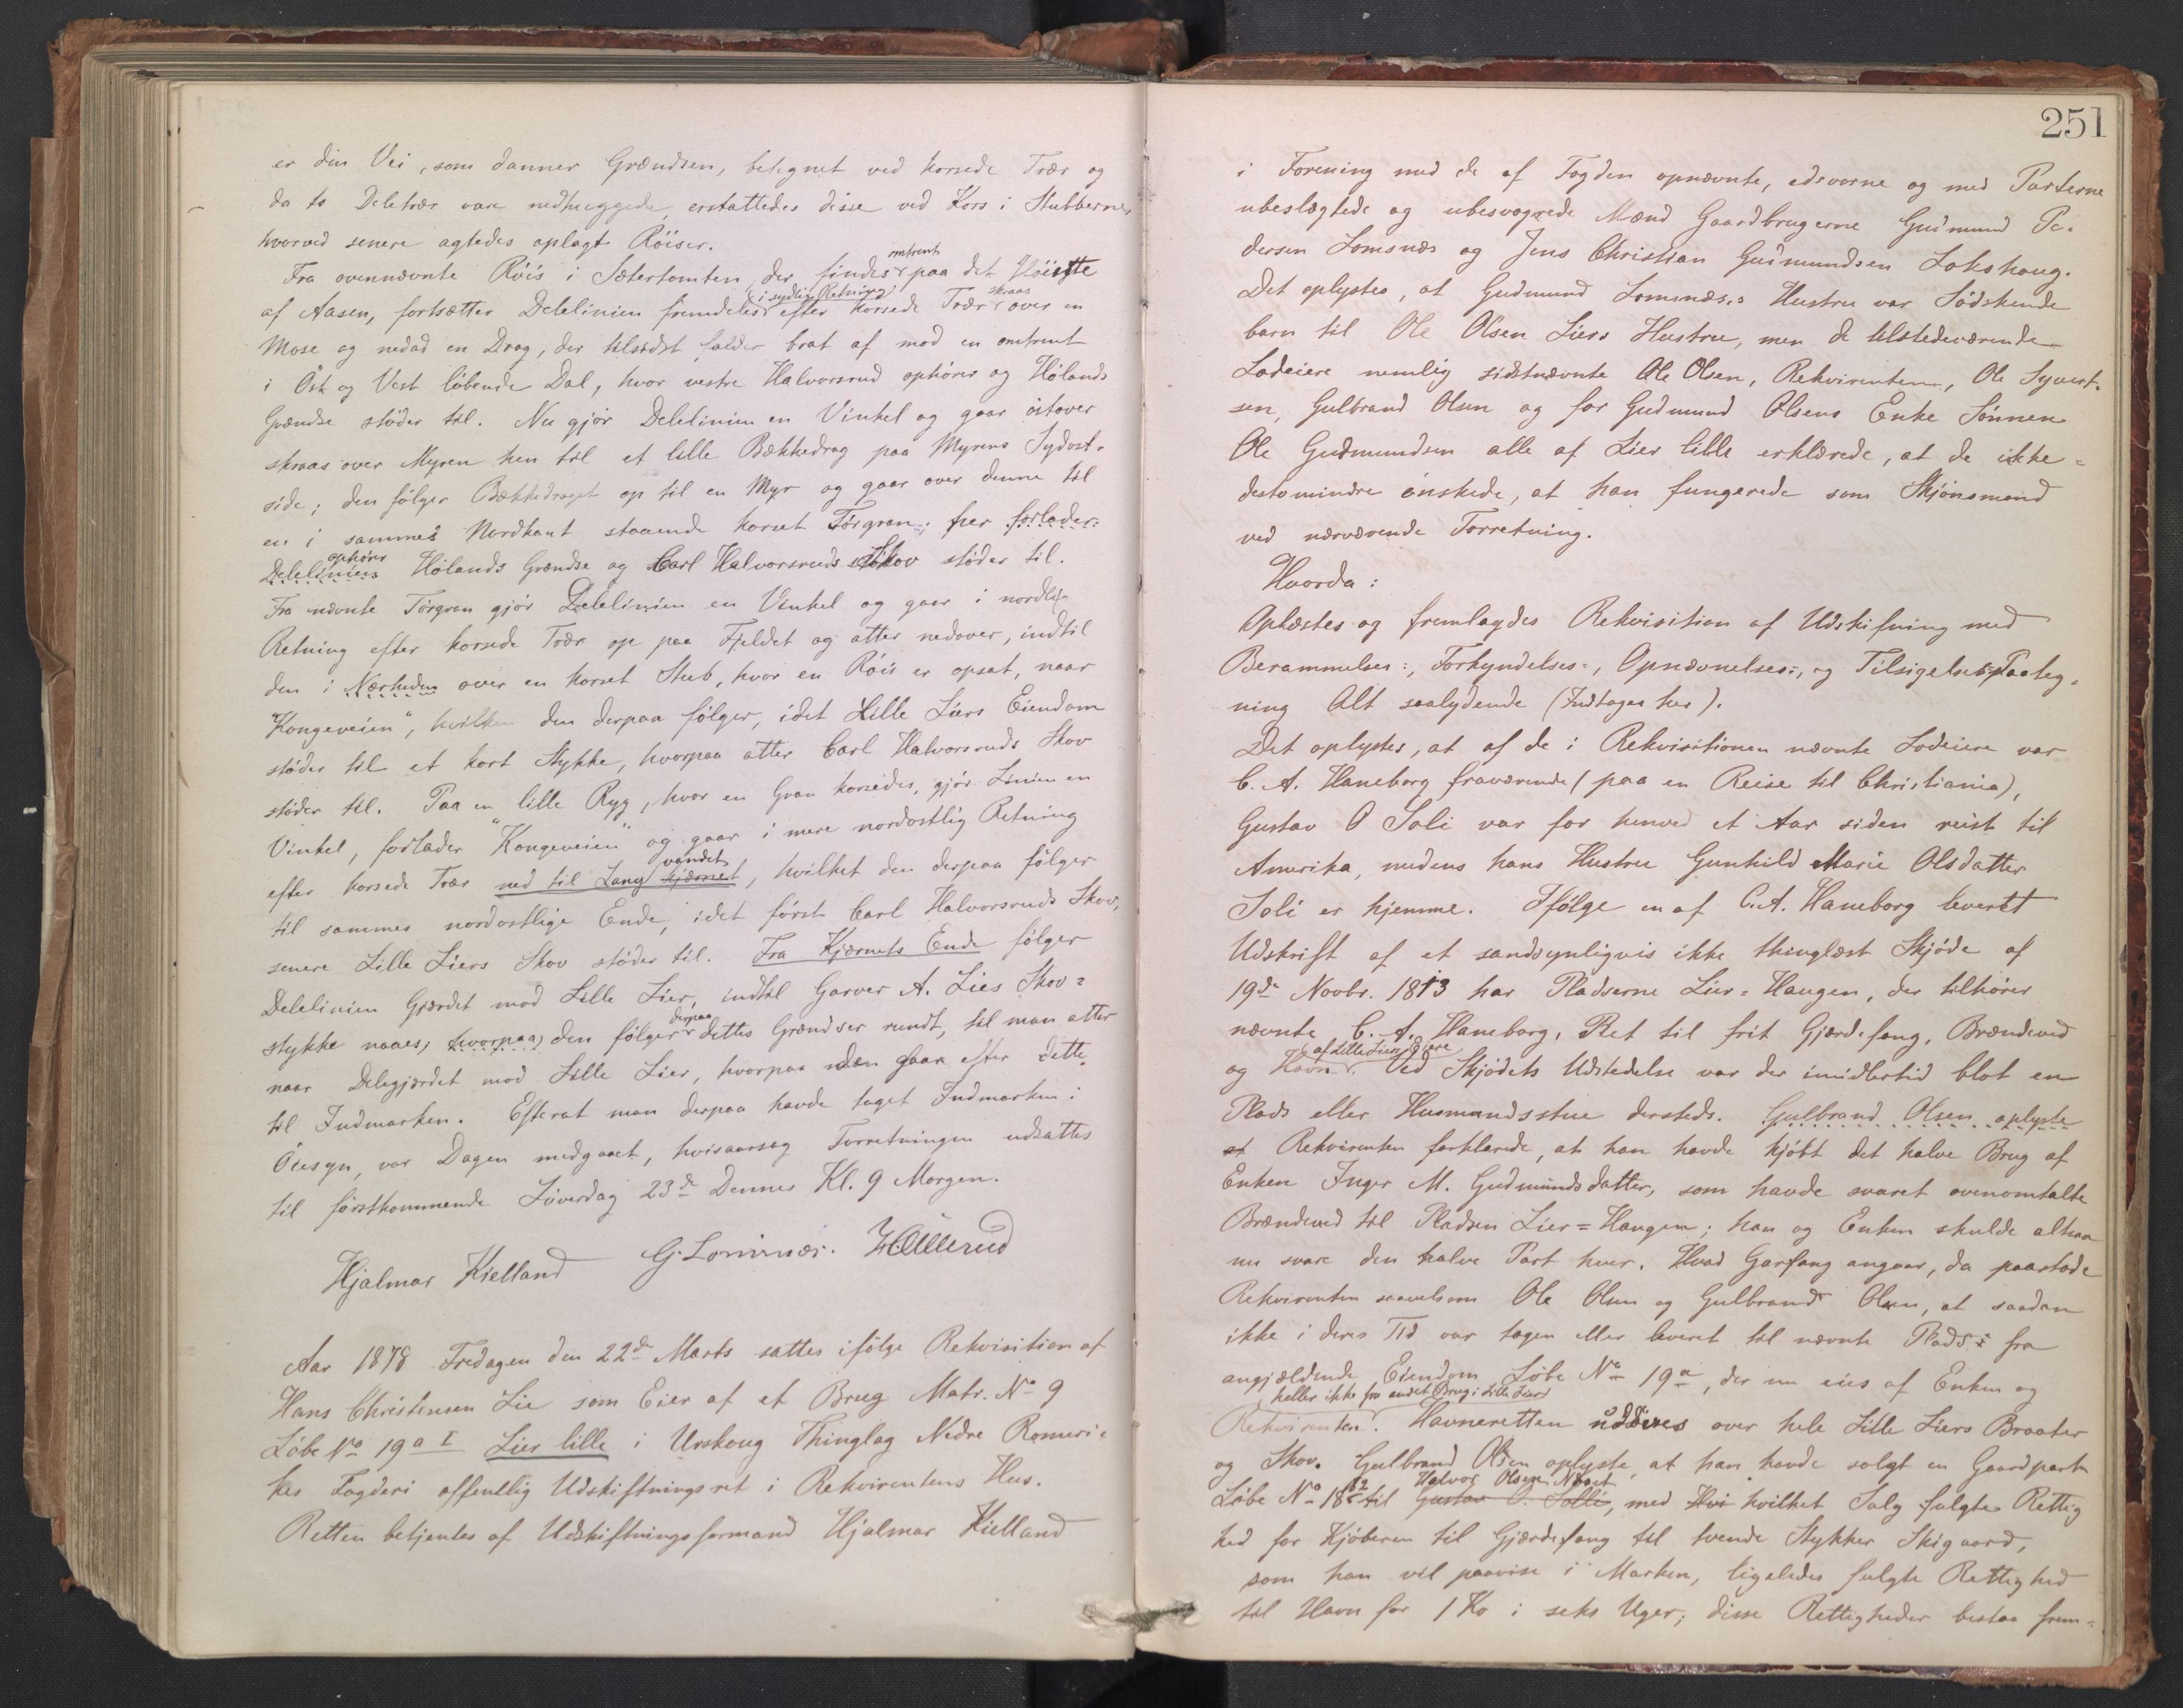 er din Vei, som danner Grændsen, betegnet ved korsede Trær og
da to Deletrær vare nedhuggede, erstattedes disse ved Kors i Stubberne,
hvorved senere agtedes oplagt Röiser.
Fra ovennævnte Röis i Sætertomten, der findes omtrent paa det Höieste
af Aasen, fortsætter Delelinien fremdeles i sydlig Retning efter korsede Trær skraas over en
Mose og nedad en Drog, der tilsidst falder brat af mod en omtrent
i Öst og Vest löbende Dal, hvor vestre Halvorsrud ophörer og Hölands
Grændse stöder til. Nu gjör Delelinien en Vinkel og gaar östover
skraas over Myren hen til et lille Bækkedrag paa Myrens Sydost-
side; den fölger Bækkedraget op til en Myr og gaar over denne til
en i sammes Nordkant staaende korset Törgran; her forlader
Delelinien ophörer Hölands Grændse og Carl Halvorsruds Skov stöder til.
Fra nævnte Törgran gjör Delelinien en Vinkel og gaar i nordlig
Retning efter korsede Trær op paa Fjeldet og atter nedover, indtil
den i Nærheden over en korset Stub, hvor en Röis er opsat, naar
"Kongeveien", hvilken den derpaa fölger, idet Lille Liers Eiendom
stöder til et kort Stykke, hvorpaa atter Carl Halvorsruds Skov
stöder til. Paa en lille Ryg, hvor en Gran korsedes, gjör Linien en
Vinkel, forlader "Kongeveien" og gaar i mere nordostlig Retning
efter korsede Trær ned til Lang kjærnet vandet, hvilket den derpaa fölger
til sammes nordostlige Ende, idet först Carl Halvorsruds Skov,
senere Lille Liers Skov stöder til. Fra Kjærnets Ende fölger
Delelinien Gjærdet mod Lille Lier, indtil Garver A. Lies Skov=
stykke naaes, hvorpaa den fölger derpaa dettes Grændser rundt, til man atter
naar Delegjærdet mod Lille Lier, hvorpaa den gaar efter dette
til Indmarken. Efterat man derpaa havde taget Indmarken i
Öiesyn, var Dagen medgaaet, hvisaarsag Forretningen udsattes
til förstkommende Löverdag 23de Dennes Kl. 9 Morgen.
Hjalmar Kielland G. Lomsnæs. H. Ullerud
Aar 1878 Fredagen den 22de Marts sattes ifölge Rekvisition af
Hans Christensen Lie som Eier af et Brug Matr. No 9
Löbe No 19 a I Lier lille i Urskoug Thinglag Nedre Romeri=
kes Fogderi offentlig Udskiftningsret i Rekvirentens Hus.
Retten betjentes af Udskiftningsformand Hjalmar Kielland
251
i Forening med de af Fogden opnævnte, edsvorne og med Parterne
ubeslægtede og ubesvogrede Mænd Gaardbrugerne Gudmund Pe=
dersen Lomsnæs og Jens Christian Gudmundsen Lokshoug.
Det oplystes, at Gudmund Lomsnæs's Hustru var Södskende
barn til Ole Olsen Liers Hustru, men de tilstedeværende
Lodeiere nemlig sidstnævnte Ole Olsen, Rekvirenten, Ole Syvert=
sen, Gulbrand Olsen og for Gudmund Olsens Enke Sönnen
Ole Gudmundsen alle af Lier lille erklærede, at de ikke=
destomindre önskede, at han fungerede som Skjönsmand
ved nærværende Forretning.
Hvorda:
Oplæstes og fremlagdes Rekvisition af Udskifning med
Berammelses=, Forkyndelses=, Opnævnelses=, og Tilsigelses Paateg=
ning Alt saalydende (Indtages her).
Det oplystes, at af de i Rekvisitionen nævnte Lodeiere var
C. A. Haneborg fraværende (paa en Reise til Christiania),
Gustav O Soli var for henved et Aar siden reist til
Amerika, medens hans Hustru Gunhild Marie Olsdatter
Soli er hjemme. Ifölge en af C. A. Haneborg leveret
Udskrift af et sandsynligvis ikke thinglæst Skjöde af
19de Novbr. 1813 har Pladserne Lier=Haugen, der tilhörer
nævnte C. A. Haneborg, Ret til frit Gjærdefang, Brændeved
og Havn af Lille Liers Eiere. Ved Skjödets Udstedelse var der imidlertid blot en
Plads eller Husmandsstue dersteds. Gulbrand Olsen oplyste
at Rekvirenten forklarede, at han havde kjöbt det halve Brug af
Enken Inger M. Gudmundsdatter, som havde svaret ovenomtalte
Brændeved til Pladsen Lier=Haugen; han og Enken skulde altsaa
nu svare den halve Part hver. Hvad Garfang angaar, da paastode
Rekvirenten saavelsom Ole Olsen og Gulbrand Olsen, at saadan
ikke i deres Tid var tagen eller leveret til nævnte Plads fra
angjældende Eiendom Löbe No 19 a, der nu eies af Enken og
Rekvirenten heller ikke fra andet Brug i Lille Lier. Havneretten udöves over hele Lille Liers Braater
og Skov. Gulbrand Olsen oplyste, at han havde solgt en Gaardpart
Löbe No 18 til Gustav O. Solli Halvor Olsen, med Hvi hvilket Salg fulgte Rettig
hed for Kjöberen til Gjærdefang til tvende Stykker Skigaard,
som han vil paavise i Marken, ligeledes fulgte Rettighed
til Havn for 1 Ko i seks Uger; disse Rettigheder bestaa frem=